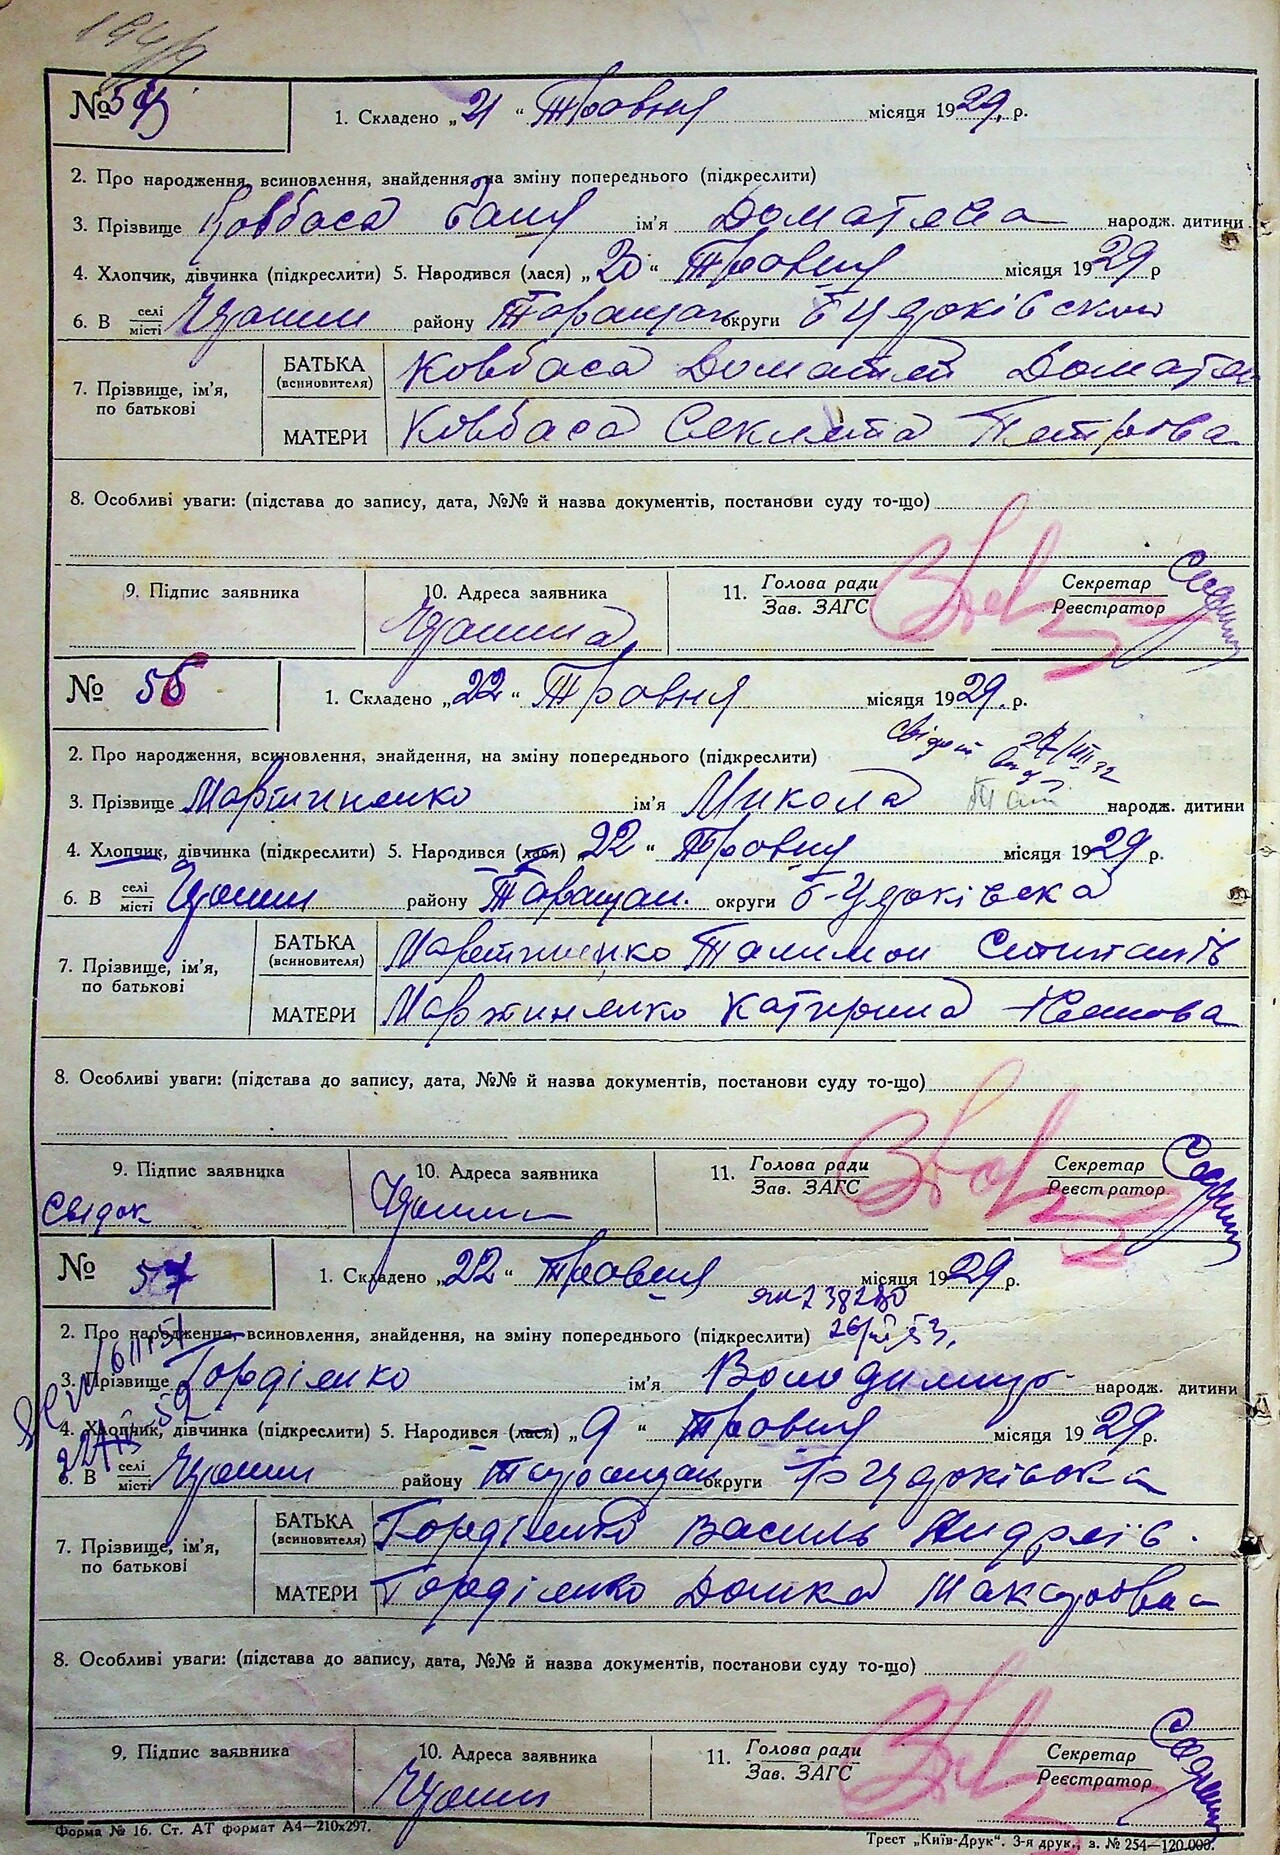 № 55
1. Складено „ 21 “ Травня місяця 1929. р.
2. Про народження, всиновлення, знайдення, на зміну попереднього (підкреслити)
3. Прізвище Ковбаса ім'я Доматєва народж. дитини
4. Хлопчик, дівчинка (підкреслити) 5. Народився (лася) „ 20 “ Травня місяця 1929 р
6. В селі/місті району Таращан округи Б Церківської
7. Прізвище, ім'я, по батькові
БАТЬКА (всиновителя) Ковбаса
МАТЕРИ Ковбаса Секлета Петрова
8. Особливі уваги: (підстава до запису, дата, №№ й назва документів, постанови суду то-що)
9. Підпис заявника 10. Адреса заявника 11. Голова ради Секретар
Зав. ЗАГС Реєстратор
№ 56
1. Складено „ 22 “ Травня місяця 1929. р.
2. Про народження, всиновлення, знайдення, на зміну попереднього (підкреслити)
3. Прізвище Мартиненко ім'я Микола народж. дитини
4. Хлопчик, дівчинка (підкреслити) 5. Народився (лася) „ 22 “ Травня місяця 1929 р.
6. В селі/місті району Таращан. округи Б-Церківська
7. Прізвище, ім'я, по батькові
БАТЬКА (всиновителя) Мартиненко Талимон
МАТЕРИ Мартиненко Катирина
8. Особливі уваги: (підстава до запису, дата, №№ й назва документів, постанови суду то-що)
9. Підпис заявника 10. Адреса заявника 11. Голова ради Секретар
Зав. ЗАГС Реєстратор
Свідок
№ 57
1. Складено „ 22 “ Травня місяця 1929 р.
2. Про народження, всиновлення, знайдення, на зміну попереднього (підкреслити)
3. Прізвище Гордієнко ім'я Володимир народж. дитини
4. Хлопчик, дівчинка (підкреслити) 5. Народився (лася) „ 9 “ Травня місяця 1929 р.
6. В селі/місті району Таращан округи Б Церківська
7. Прізвище, ім'я, по батькові
БАТЬКА (всиновителя) Гордієнко Василь Андріїв.
МАТЕРИ Гордієнко Домка
8. Особливі уваги: (підстава до запису, дата, №№ й назва документів, постанови суду то-що)
9. Підпис заявника 10. Адреса заявника 11. Голова ради Секретар
Зав. ЗАГС Реєстратор
Форма № 16. Ст. АТ формат А4—210x297. Трест „Київ-Друк“. 3-я друк., з. № 254—120.000.